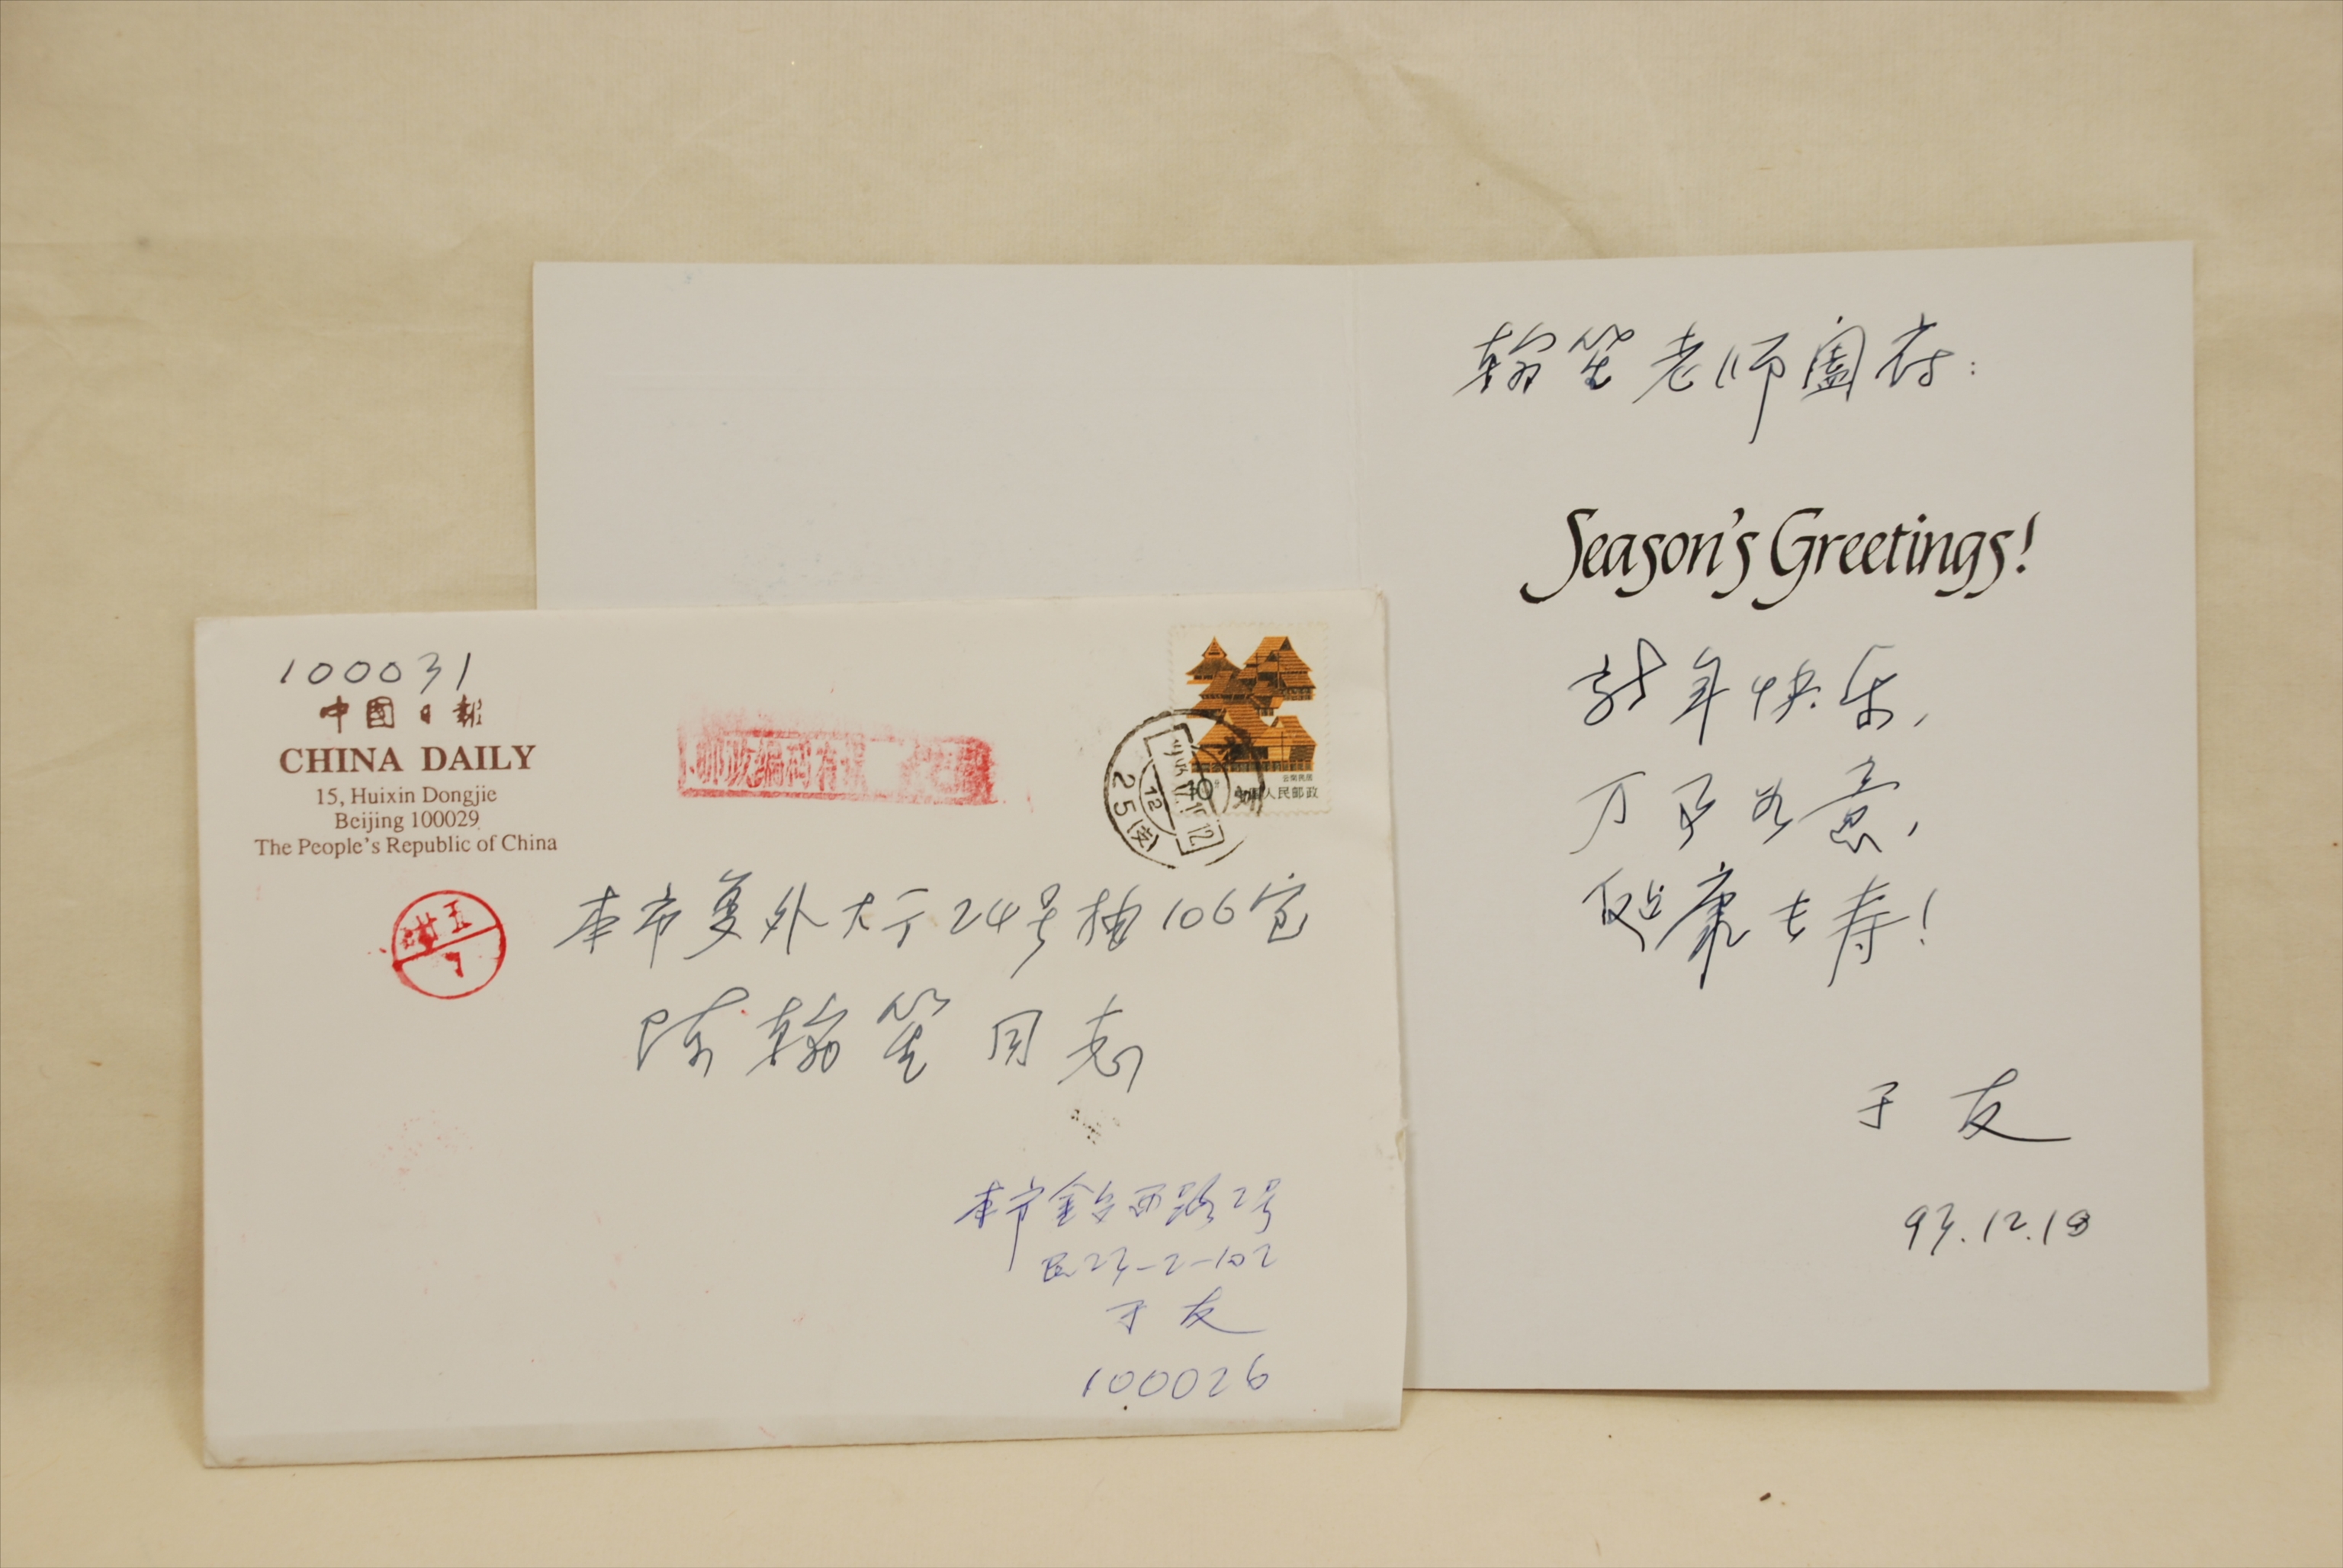 100031
中國日報
CHINA DAILY
15, Huixin Dongjie
Beijing 100029
The People's Republic of China
云南民居
中国人民邮政
25(支)
本市复外大街24号楼106室
陈翰笙同志
本市金台西路2号
23-2-102
于友
100026
翰笙老师阖府:
Season's Greetings!
新年快乐,
万事如意,
健康长寿!
于友
93.12.18